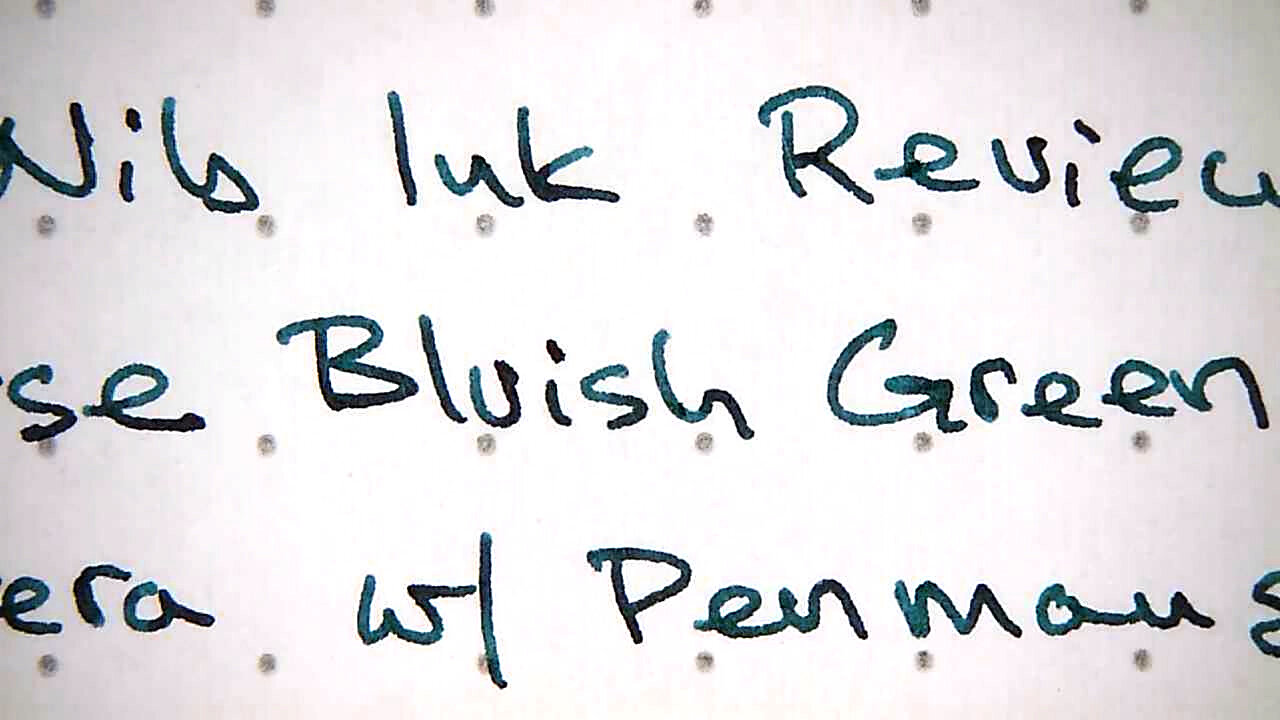 Nibs Ink Review
se Bluish Green
era w/ Penmans